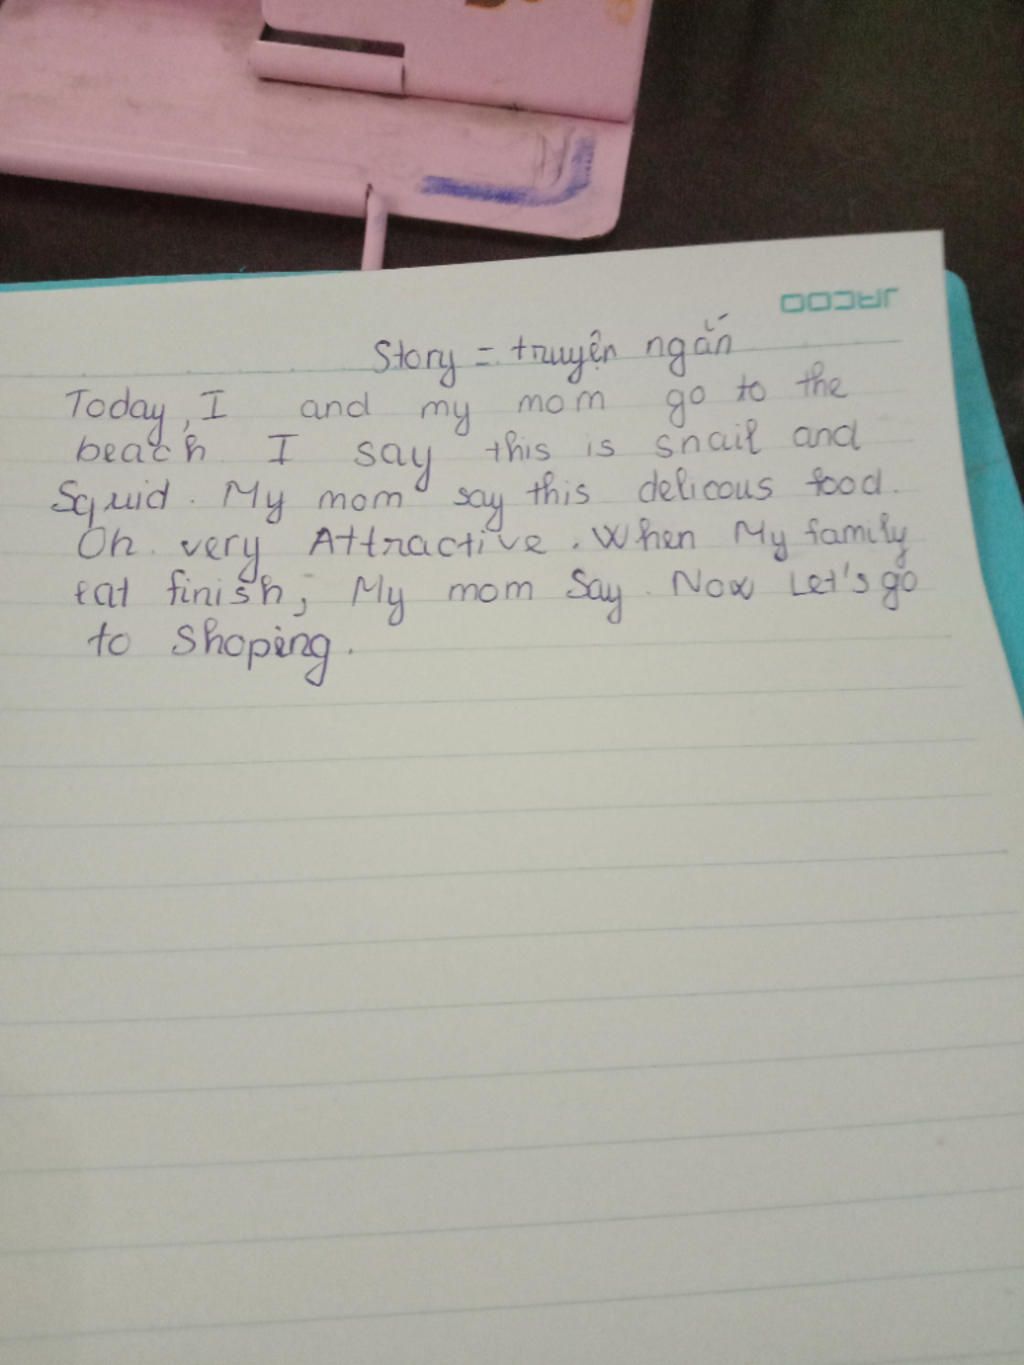 JACOO
Story = truyện ngắn
Today, I and my mom go to the
beach I say this is snail and
Squid. My mom say this delicous food.
Oh very Attractive. When My family
eat finish, My mom Say. Now Let's go
to Shoping.